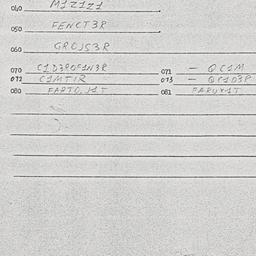 040 M1Z1Z1
050 FENCT3R
060 GROJS3R
070 C1D3ROF1N3R 071 - QC1M
072 C1MTIR 073 - QC1D3R
080 FARTO,J1T 081 FARUY1T